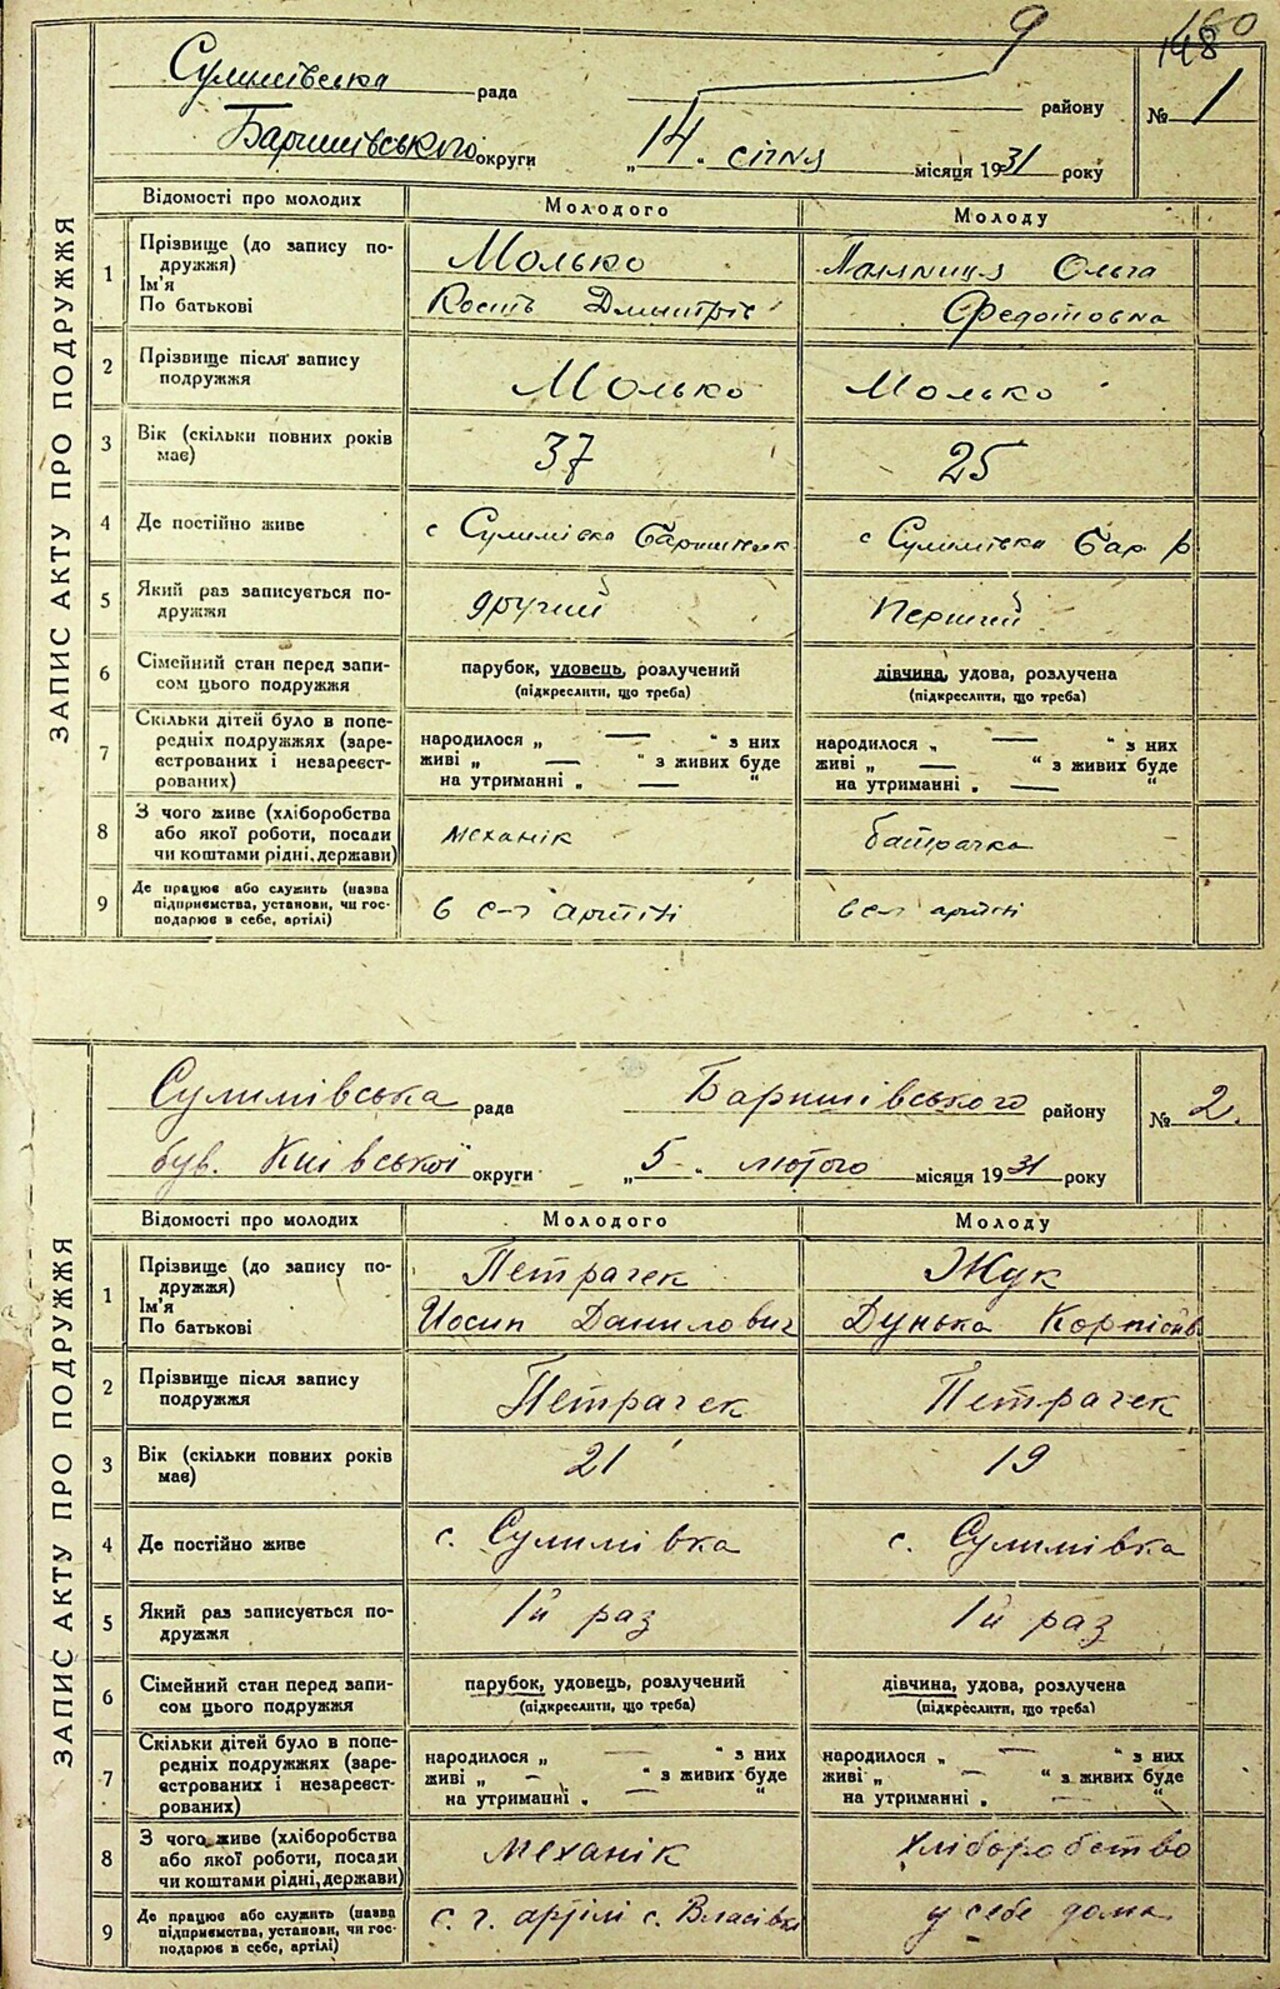 9
148
160
ЗАПИС АКТУ ПРО ПОДРУЖЖЯ
Сулимівська рада району № 1
Баришівського округи „14“ січня місяця 1931 року
Відомості про молодих Молодого Молоду
1 Прізвище (до запису подружжя) Молько Паляниця Ольга
Ім'я
По батькові Кость Дмитріє Федотовна
2 Прізвище після запису подружжя Молько Молько
3 Вік (скільки повних років має) 37 25
4 Де постійно живе с Сулимівка с Сулимівка Бар р
5 Який раз записується подружжя другий перший
6 Сімейний стан перед записом цього подружжя парубок, удовець, розлучений дівчина, удова, розлучена
(підкреслити, що треба) (підкреслити, що треба)
7 Скільки дітей було в попередніх подружжях (зареєстрованих і незареєстрованих) народилося „ — “ з них народилося „ — “ з них
живі „ — “ з живих буде живі „ — “ з живих буде
на утриманні „ — “ на утриманні „ — “
8 З чого живе (хліборобства або якої роботи, посади чи коштами рідні, держави) механік батрачка
9 Де працює або служить (назва підприємства, установи, чи господарює в себе, артілі) в с-г артілі в с-г артілі
ЗАПИС АКТУ ПРО ПОДРУЖЖЯ
Сулимівська рада Баришівського району № 2.
був. Київської округи „5“ лютого місяця 1931 року
Відомості про молодих Молодого Молоду
1 Прізвище (до запису подружжя) Петрачек Жук
Ім'я
По батькові Йосип Данилович Дунька
2 Прізвище після запису подружжя Петрачек Петрачек
3 Вік (скільки повних років має) 21 19
4 Де постійно живе с. Сулимівка с. Сулимівка
5 Який раз записується подружжя 1й раз 1й раз
6 Сімейний стан перед записом цього подружжя парубок, удовець, розлучений дівчина, удова, розлучена
(підкреслити, що треба) (підкреслити, що треба)
7 Скільки дітей було в попередніх подружжях (зареєстрованих і незареєстрованих) народилося „ — “ з них народилося „ — “ з них
живі „ — “ з живих буде живі „ — “ з живих буде
на утриманні „ — “ на утриманні „ — “
8 З чого живе (хліборобства або якої роботи, посади чи коштами рідні, держави) механік хліборобство
9 Де працює або служить (назва підприємства, установи, чи господарює в себе, артілі) с. г. артілі с. Власівка у себе дома